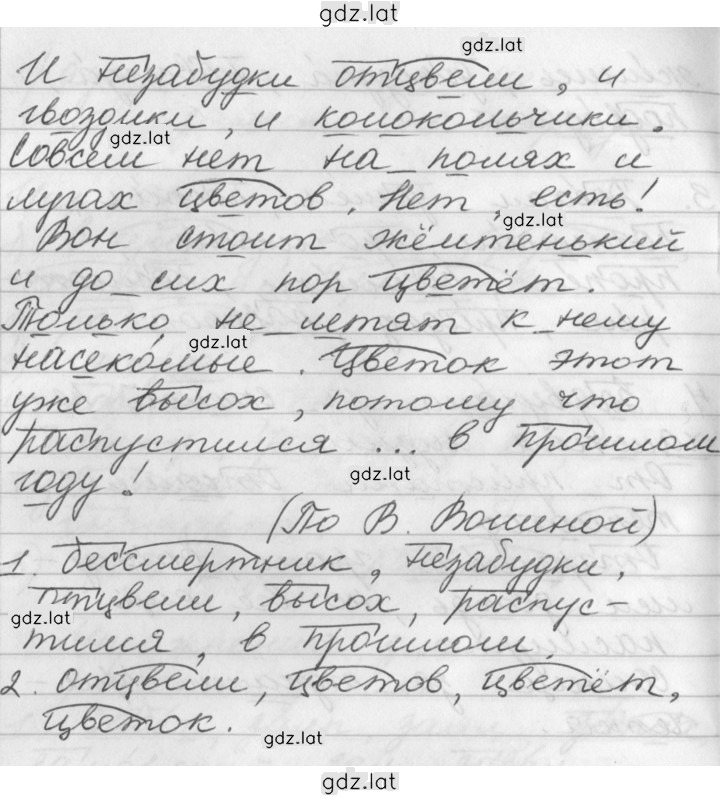 gdz.lat
gdz.lat
И незабудки отцвели, и
гвоздики, и колокольчики.
gdz.lat
Совсем нет на полях и
лугах цветов. Нет, есть!
gdz.lat
Вон стоит жёлтенький
и до сих пор цветёт.
Только не летят к нему
gdz.lat
насекомые. Цветок этот
уже высох, потому что
распустился ... в прошлом
gdz.lat
году!
(По В. Волиной)
1. бессмертник, незабудки,
отцвели, высох, распус-
gdz.lat
тился, в прошлом.
2. отцвели, цветов, цветёт,
цветок.
gdz.lat
gdz.lat